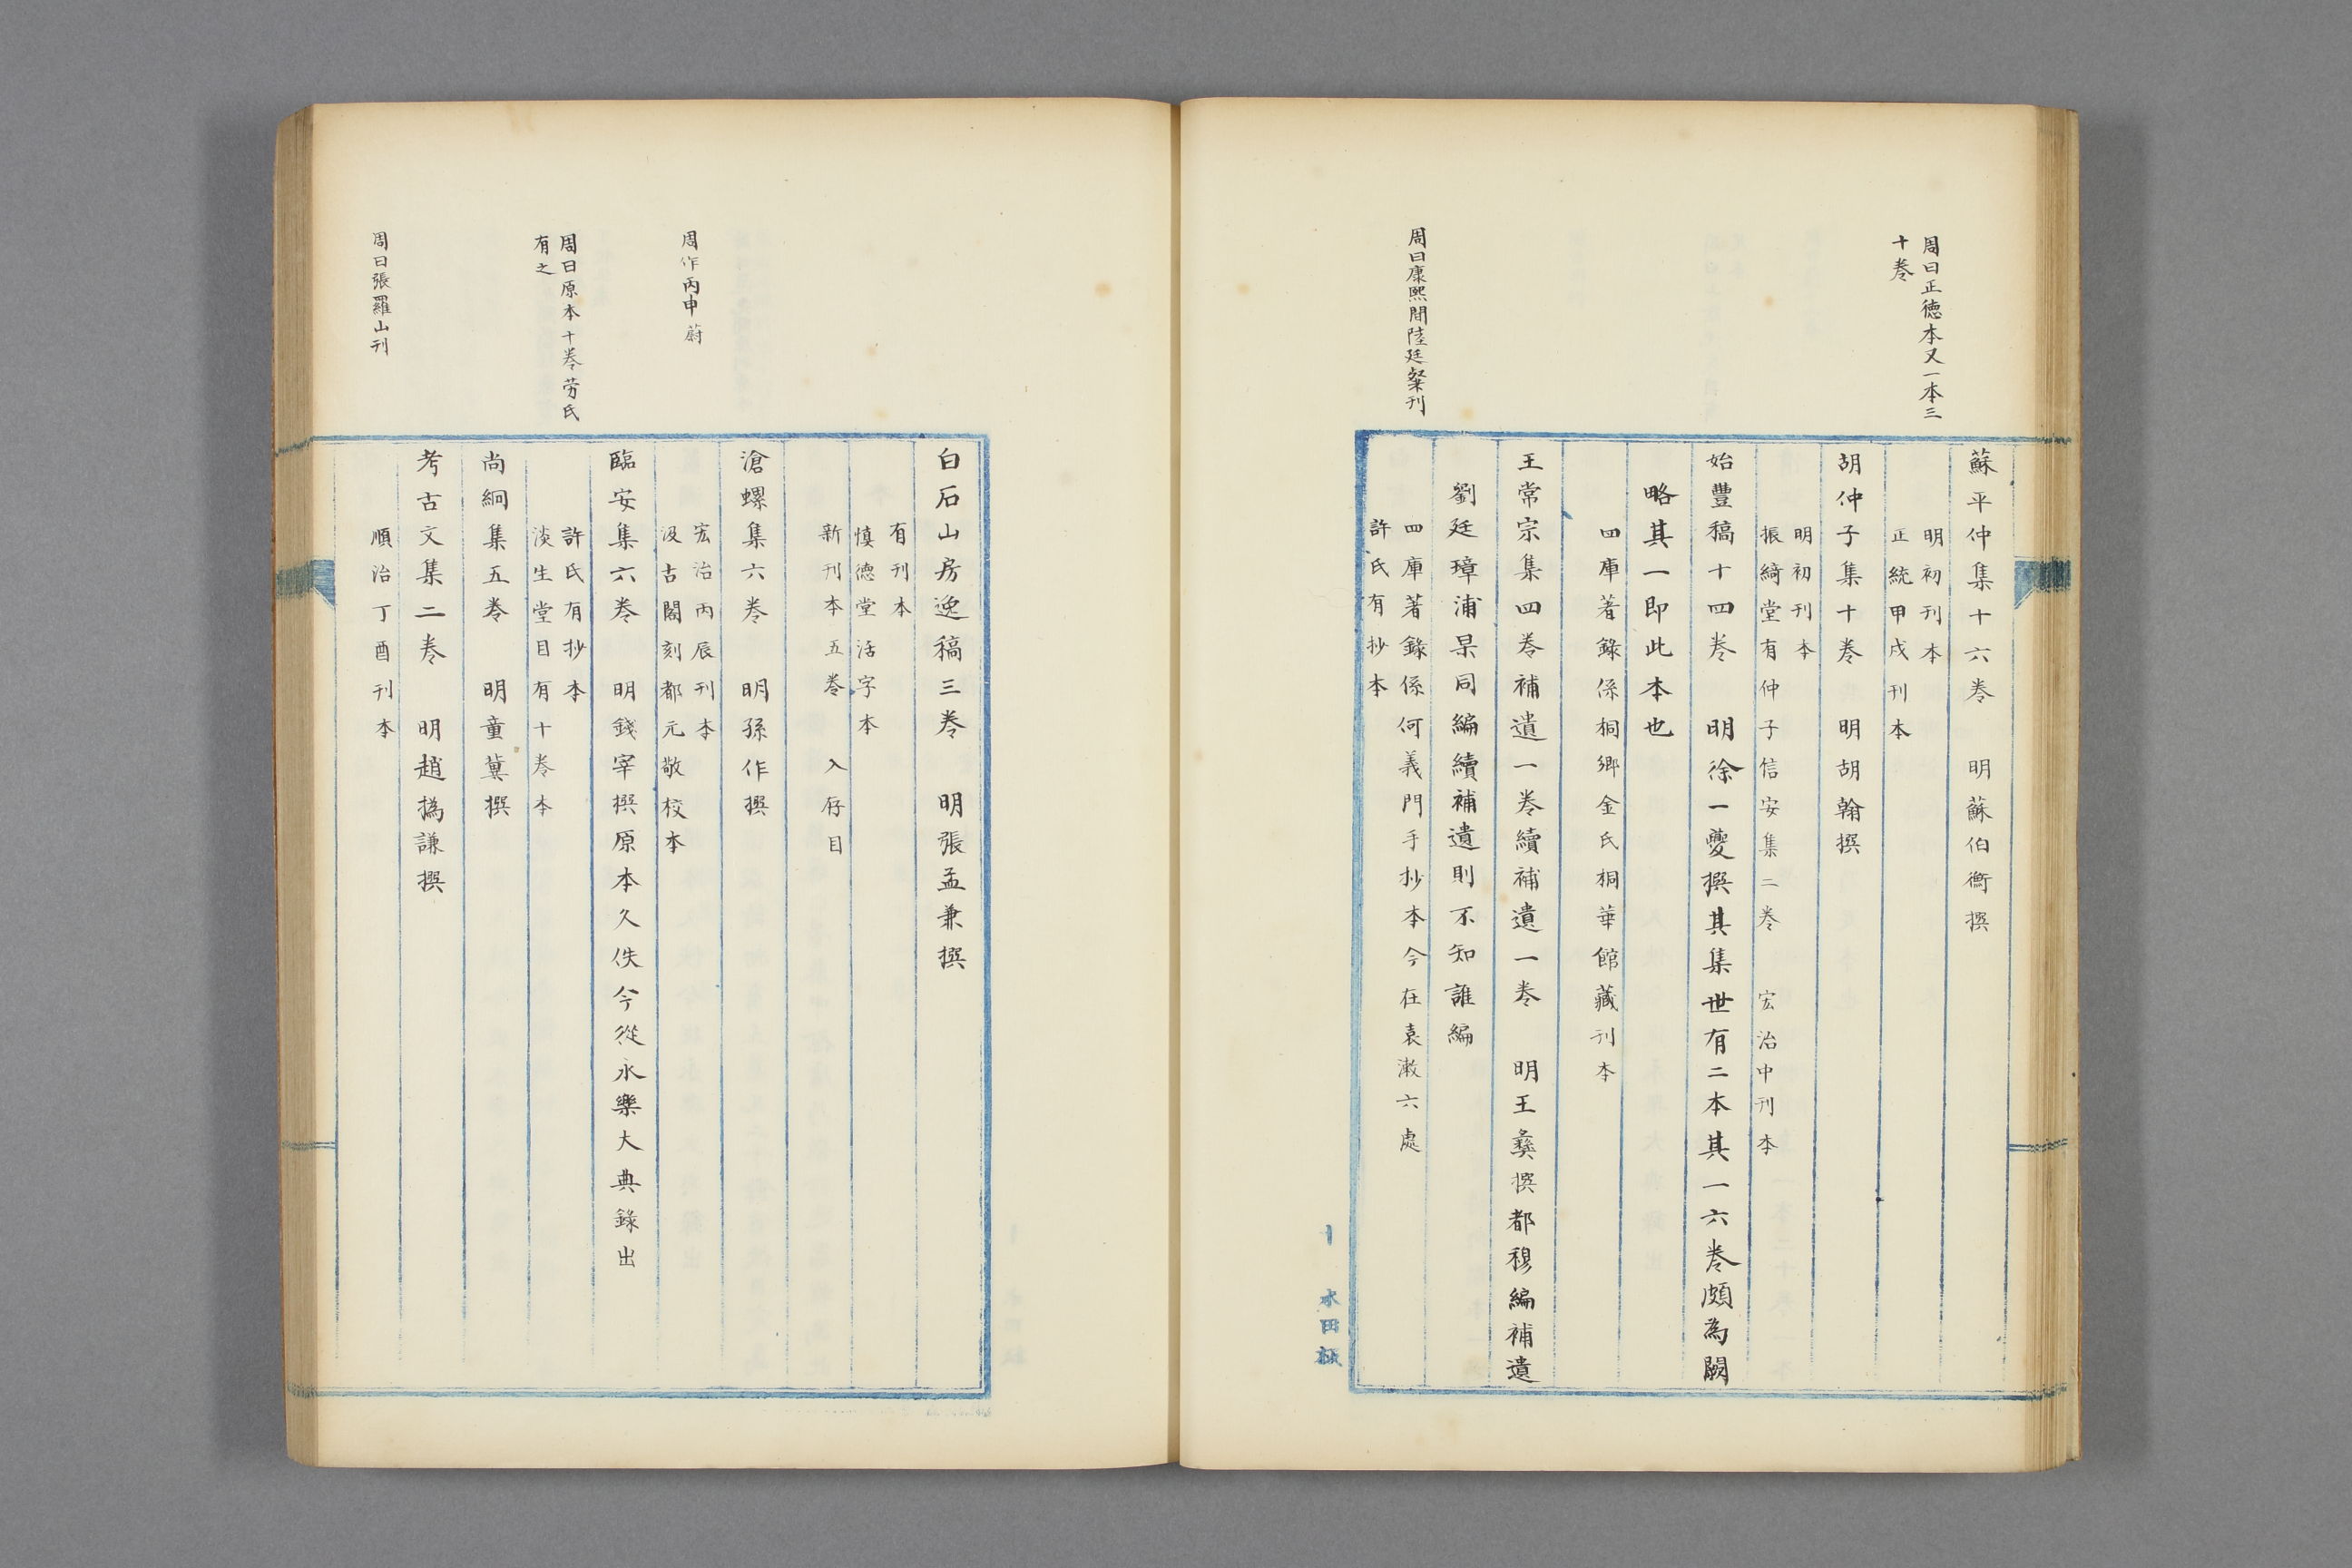 周曰正德本又一本三
十卷
蘇平仲集十六卷　明蘇伯衡撰
明初刊本
正統甲戌刊本
胡仲子集十卷　明胡翰撰
明初刊本
振綺堂有仲子信安集二卷　宏治中刊本
始豐稿十四卷　明徐一夔撰其集世有二本其一六卷頗為闕
略其一即此本也
四庫著錄係桐鄉金氏桐華館藏刊本
王常宗集四卷補遺一卷續補遺一卷　明王彝撰都穆編補遺
周曰康熙間陸廷粲刊
劉廷璋浦杲同編續補遺則不知誰編
四庫著錄係何義門手抄本今在袁漱六處
許氏有抄本
白石山房逸稿三卷　明張孟兼撰
有刊本
慎德堂活字本
新刊本五卷　入存目
滄螺集六卷　明孫作撰
周作丙申蔚
宏治丙辰刊本
汲古閣刻都元敬校本
臨安集六卷　明錢宰撰原本久佚今從永樂大典錄出
周曰原本十卷勞氏
有之
許氏有抄本
淡生堂目有十卷本
尚絅集五卷　明童冀撰
考古文集二卷　明趙撝謙撰
周曰張羅山刊
順治丁酉刊本